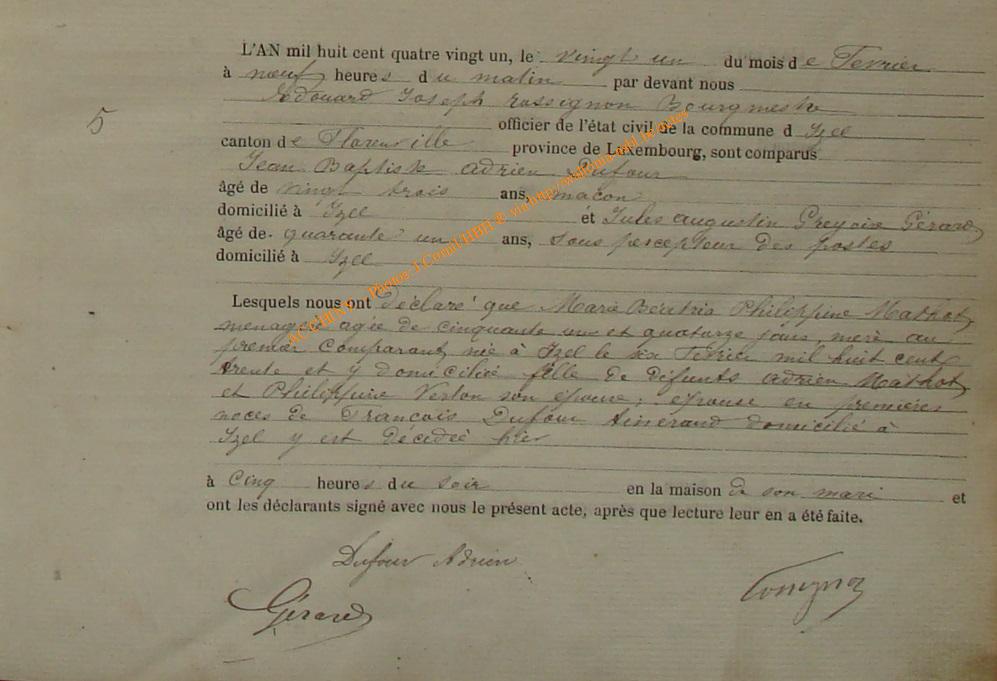 L'AN mil huit cent quatre vingt un, le vingt un du mois de Fevrier
à neuf heures du matin par devant nous
Edouard Joseph rossignon Bourgmestre
5
officier de l'état civil de la commune d Izel
canton de Florenville province de Luxembourg, sont comparus
Jean Baptiste adrien Dufour
âgé de vingt trois ans, maçon
domicilié à Izel et Jules augustin Gregoire Gérard
âgé de quarante un ans, sous percepteur des postes
domicilié à Izel
Lesquels nous ont déclaré que Marie Béatrix Philippine Mathot
menagère agée de cinquante un et quatorze jours mère au
premier comparant, née à Izel le six Fevrier mil huit cent
trente et y domiciliée fille de difunts adrien Mathot
et Philippine son épouse; épouse en premières
noces de François Dufour domicilié à
Izel y est décédée hier
à cinq heures du soir en la maison de son mari et
ont les déclarants signé avec nous le présent acte, après que lecture leur en a été faite.
Dufour Adrien
Gérard